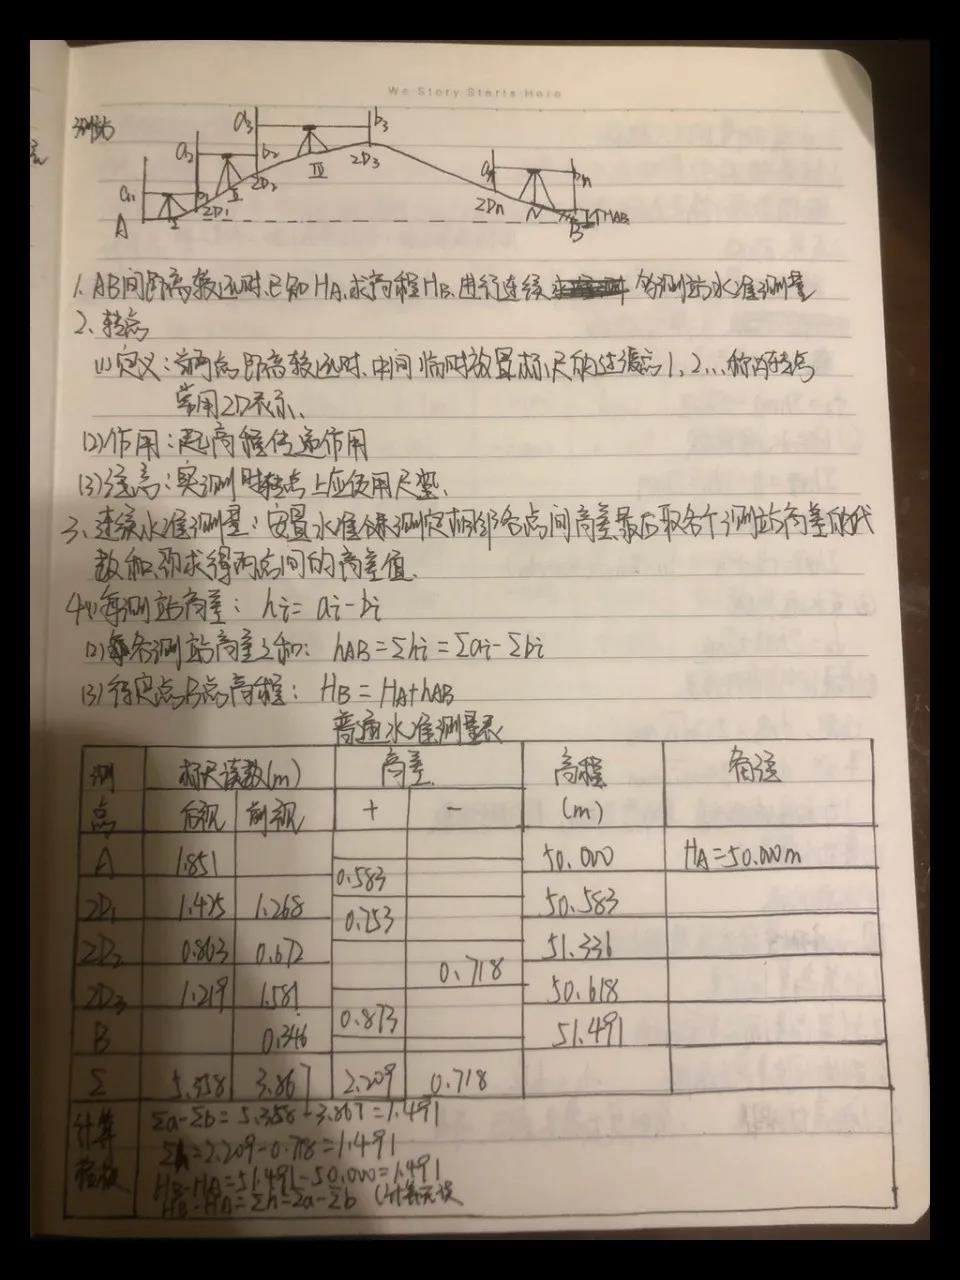 We Story Starts Here
测站
a1 b1 a2 b2 a3 b3 an bn
A I ZD1 II ZD2 III ZD3 ZDn N B HAB
1. AB间距离较远时,已知HA,求高程HB,进行连续 多测站水准测量
2、转点
(1)定义:当两点距离较远时,中间临时放置标尺的过渡点1,2...称为转点
常用ZD表示、
(2)作用:起高程传递作用
(3)注意:实测时转点上应使用尺垫、
3、连续水准测量:安置水准仪测定相邻各点间高差,最后取各个测站高差的代
数和,即求得两点间的高差值.
4(1)每测站高差: hi=ai-bi
(2)各测站高差之和: hAB=Σhi=Σai-Σbi
(3)待定点B点高程: HB=HA+hAB
普通水准测量表
测点 标尺读数(m) 高差 高程(m) 备注
后视 前视 + -
A 1.851 50.000 HA=50.000m
0.583
ZD1 1.425 1.268 50.583
0.753
ZD2 0.863 0.672 51.336
0.718
ZD3 1.219 1.581 50.618
0.873
B 0.346 51.491
Σ 5.358 3.867 2.209 0.718
计算检核
Σa-Σb=5.358-3.867=1.491
Σh=2.209-0.718=1.491
HB-HA=51.491-50.000=1.491
HB-HA=Σh=Σa-Σb (计算无误